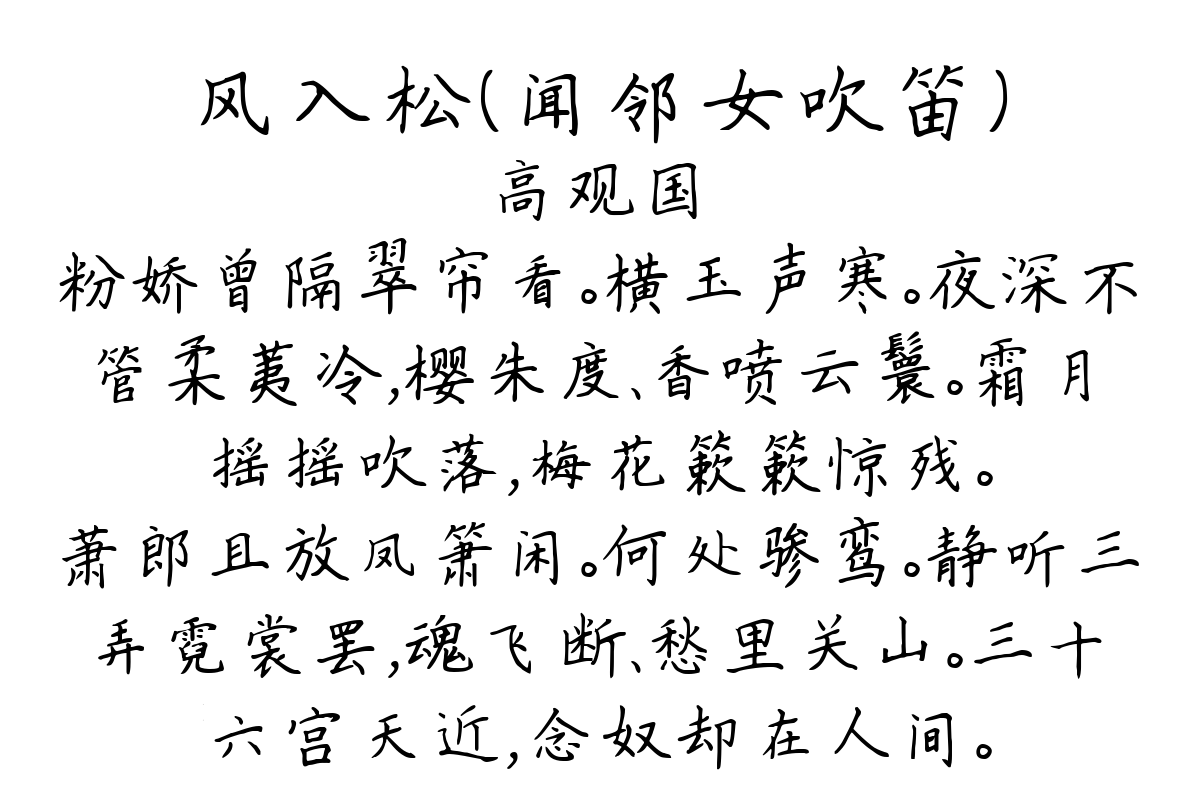 风入松(闻邻女吹笛)
高观国
粉娇曾隔翠帘看。横玉声寒。夜深不
管柔荑冷,樱朱度、香喷云鬟。霜月
摇摇吹落,梅花簌簌惊残。
萧郎且放凤箫闲。何处骖鸾。静听三
弄霓裳罢,魂飞断、愁里关山。三十
六宫天近,念奴却在人间。